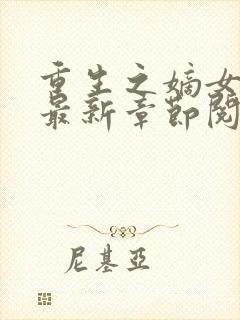 重生之嫡女
最新章节阅
尼基亞